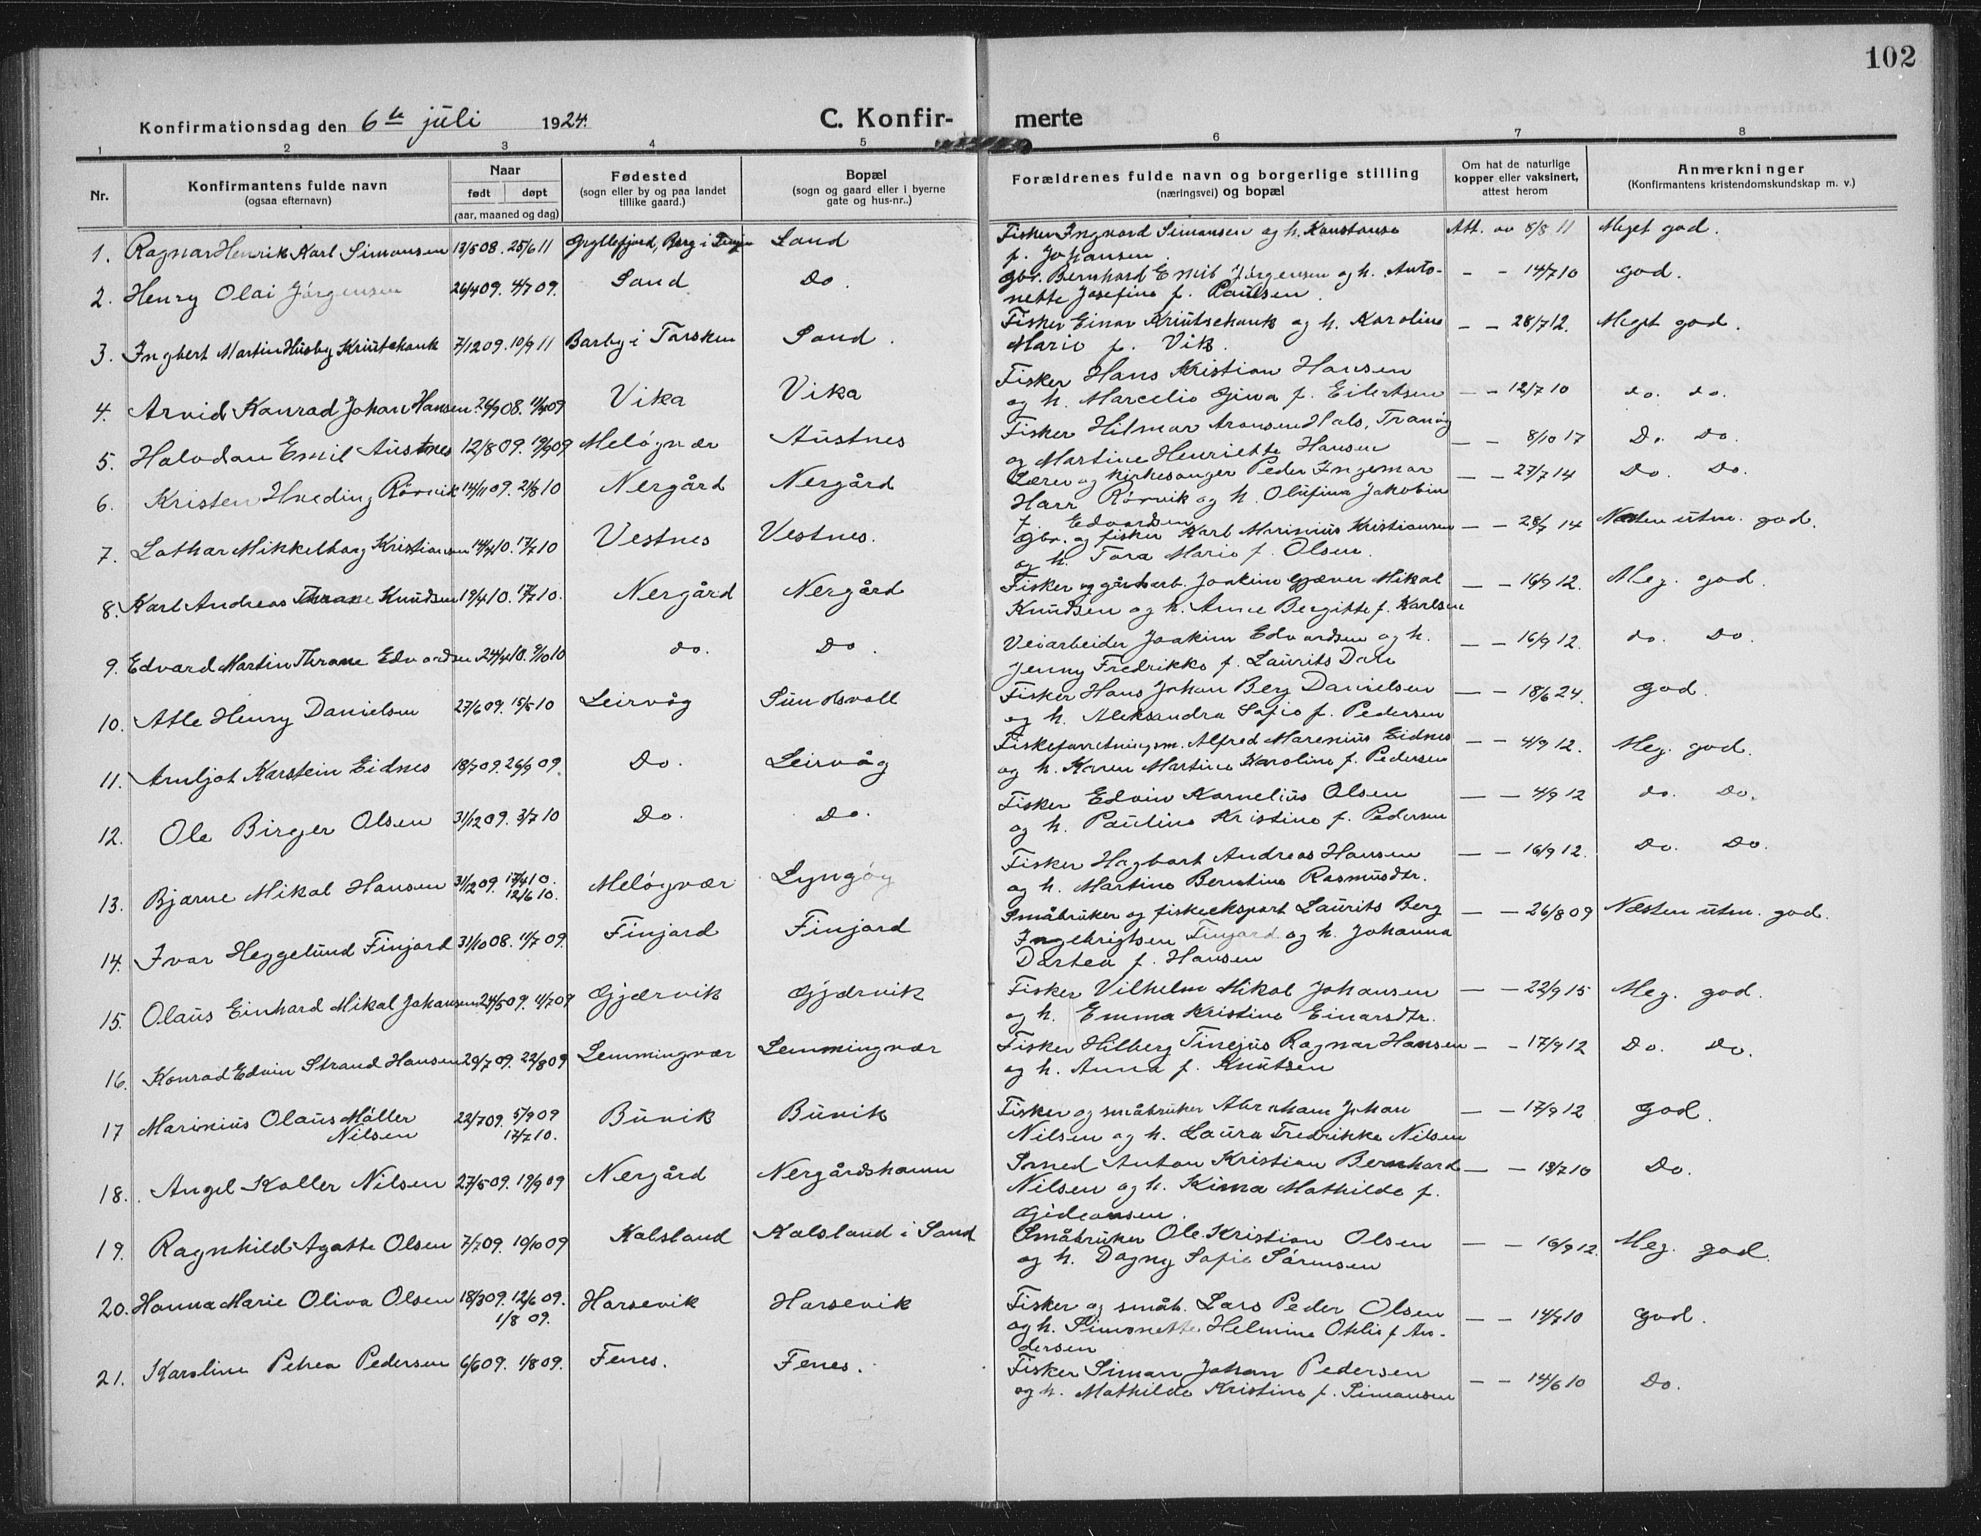 102
Konfirmationsdag den 6te juli 1924. C. Konfirmerte
1 2 3 4 5 6 7 8
Nr. Konfirmantens fulde navn (ogsaa efternavn) Naar født døpt (aar, maaned og dag) Fødested (sogn eller by og paa landet tillike gaard.) Bopæl (sogn og gaard eller i byerne gate og hus-nr..) Forældrenes fulde navn og borgerlige stilling (næringsvei) og bopæl Om hat de naturlige kopper eller vaksinert, attest herom Anmerkninger (Konfirmantens kristendomskundskap m. v.)
1. Ragnar Henrik Karl Simonsen 13/5 08. 25/6 11 Gryllefjord, Berg i Senjen Sand Fisker Ingvard Simonsen og h. Konstanse Att. av 8/8 11 Meget god.
f. Johansen.
2. Henry Olai Jørgensen 26/4 09. 4/7 09. Sand Do. Gbr. Bernhard Emil Jørgensen og h. Anto- - - 14/7 10 god.
nette Josefine f. Paulsen.
3. Ingbert Martin Husby Knutsehauk 7/12 09. 10/9 11 Barby i Torsken Sand. Fisker Einar Knutsehauk og h. Karoline - - 28/7 12. Meget god.
Marie f. Vik.
4. Arvid Konrad Johan Hansen. Vika Vika Fisker Hans Kristian Hansen
og h. Marcelie Gina f. Eilertsen - - 12/7 10 do. do.
5. Halvdan Emil Austnes 12/8 09. 19/9 09 Meløyvær Austnes Fisker Hilmar Aronsen Hals, Tranøy
og Martine Henriette Hansen - - 8/10 17 Do. Do.
6. Kristen Hveding Rørvik 14/11 09. 21/8 10 Nergård Nergård Lærer og kirkesanger Peder Ingemar - - 27/7 14 Do. Do.
Harr Rørvik og h. Olufina Jakobine
f. Edvardsen
7. Lothar Mikkelborg Kristiansen 14/4 10. 17/7 10 Vestnes Vestnes. Gbr. og fisker Karl Marinius Kristiansen - - 28/7 14 Næsten utm. god.
og h. Tora Marie f. Olsen.
8. Karl Andreas Thrane Knudsen 19/4 10. 17/7 10. Nergård Nergård Fisker og gårdarb. Joakim Gjæver Mikal - - 16/9 12. Meg. god.
Knudsen og h. Anne Bergitte f. Karlsen
9. Edvard Martin Thrane Edvardsen 24/4 10. 9/10 10 do. Do. Veiarbeider Joakim Edvardsen og h. - - 16/9 12. do. Do.
Jenny Fredrikke f. Laurits Datr
10. Atle Henry Danielsen 27/6 09. 15/5 10 Leirvåg Sundsvoll Fisker Hans Johan Berg Danielsen - - 18/6 24. god.
og h. Aleksandra Sofie f. Pedersen
11. Arnljot Karstein Eidnes 18/7 09. 26/9 09. Do. Leirvåg Fiskeforretningsm. Alfred Marenius Eidnes - - 4/9 12. Meg. god.
og h. Karen Martine Karoline f. Pedersen
12. Ole Birger Olsen 31/12 09. 3/7 10 Do. Do. Fisker Edvin Kornelius Olsen - - 4/9 12 do. Do.
og h. Pauline Kristine f. Pedersen
13. Bjarne Mikal Hansen 31/12 09. 17/4 10. 12/6 10. Meløyvær Lyngøy Fisker Hagbart Andreas Hansen - - 16/9 12. Do. Do.
og h. Martine Berntine Rasmusdtr.
14. Ivar Heggelund Finjord 31/10 08. 11/7 09. Finjord Finjord Småbruker og fiskeeksport Laurits Berg - - 26/8 09 Næsten utm. god.
Ingebrigtsen Finjord og h. Johanna
Dortea f. Hansen
15. Olaus Einhard Mikal Johansen 24/5 09. 11/7 09 Gjærvik Gjærvik Fisker Vilhelm Mikal Johansen - - 22/9 15 Meg. god.
og h. Emma Kristine Einarsdtr.
16. Konrad Edvin Strand Hansen 29/7 09. 22/8 09 Lemmingvær Lemmingvær Fisker Hilberg Tinejus Ragnar Hansen - - 17/9 12 Do. Do.
og h. Anna f. Knutsen
17 Marinius Olaus Møller Nilsen 22/7 09. 5/9 09 17/7 10. Buvik Buvik Fisker og småbruker Abraham Johan - - 17/9 12 god.
Nilsen og h. Laura Fredrikke Nilsen
18. Angel Koller Nilsen 27/5 09. 19/9 09 Nergård Nergårdshamn Smed Anton Kristian Bernhard - - 13/7 10 Do.
Nilsen og h. Kima Mathilde f.
Gideonsen.
19. Ragnhild Agatte Olsen 7/7 09. 10/10 09 Kalsland Kalsland i Sand Småbruker Ole Kristian Olsen - - 16/9 12. Meg. god.
og h. Dagny Sofie Sørensen
20. Hanna Marie Oliva Olsen 18/3 09. 12/6 09. 1/8 09. Harsevik Harsevik Fisker og småb. Lars Peder Olsen - - 14/7 10 god.
og h. Simonette Helmine Otilie f. An-
dersen
21. Karoline Petrea Pedersen 6/6 09. 1/8 09. Fenes. Fenes. Fisker Simon Johan Pedersen - - 14/6 10 Do.
og h. Mathilde Kristine f. Simonsen